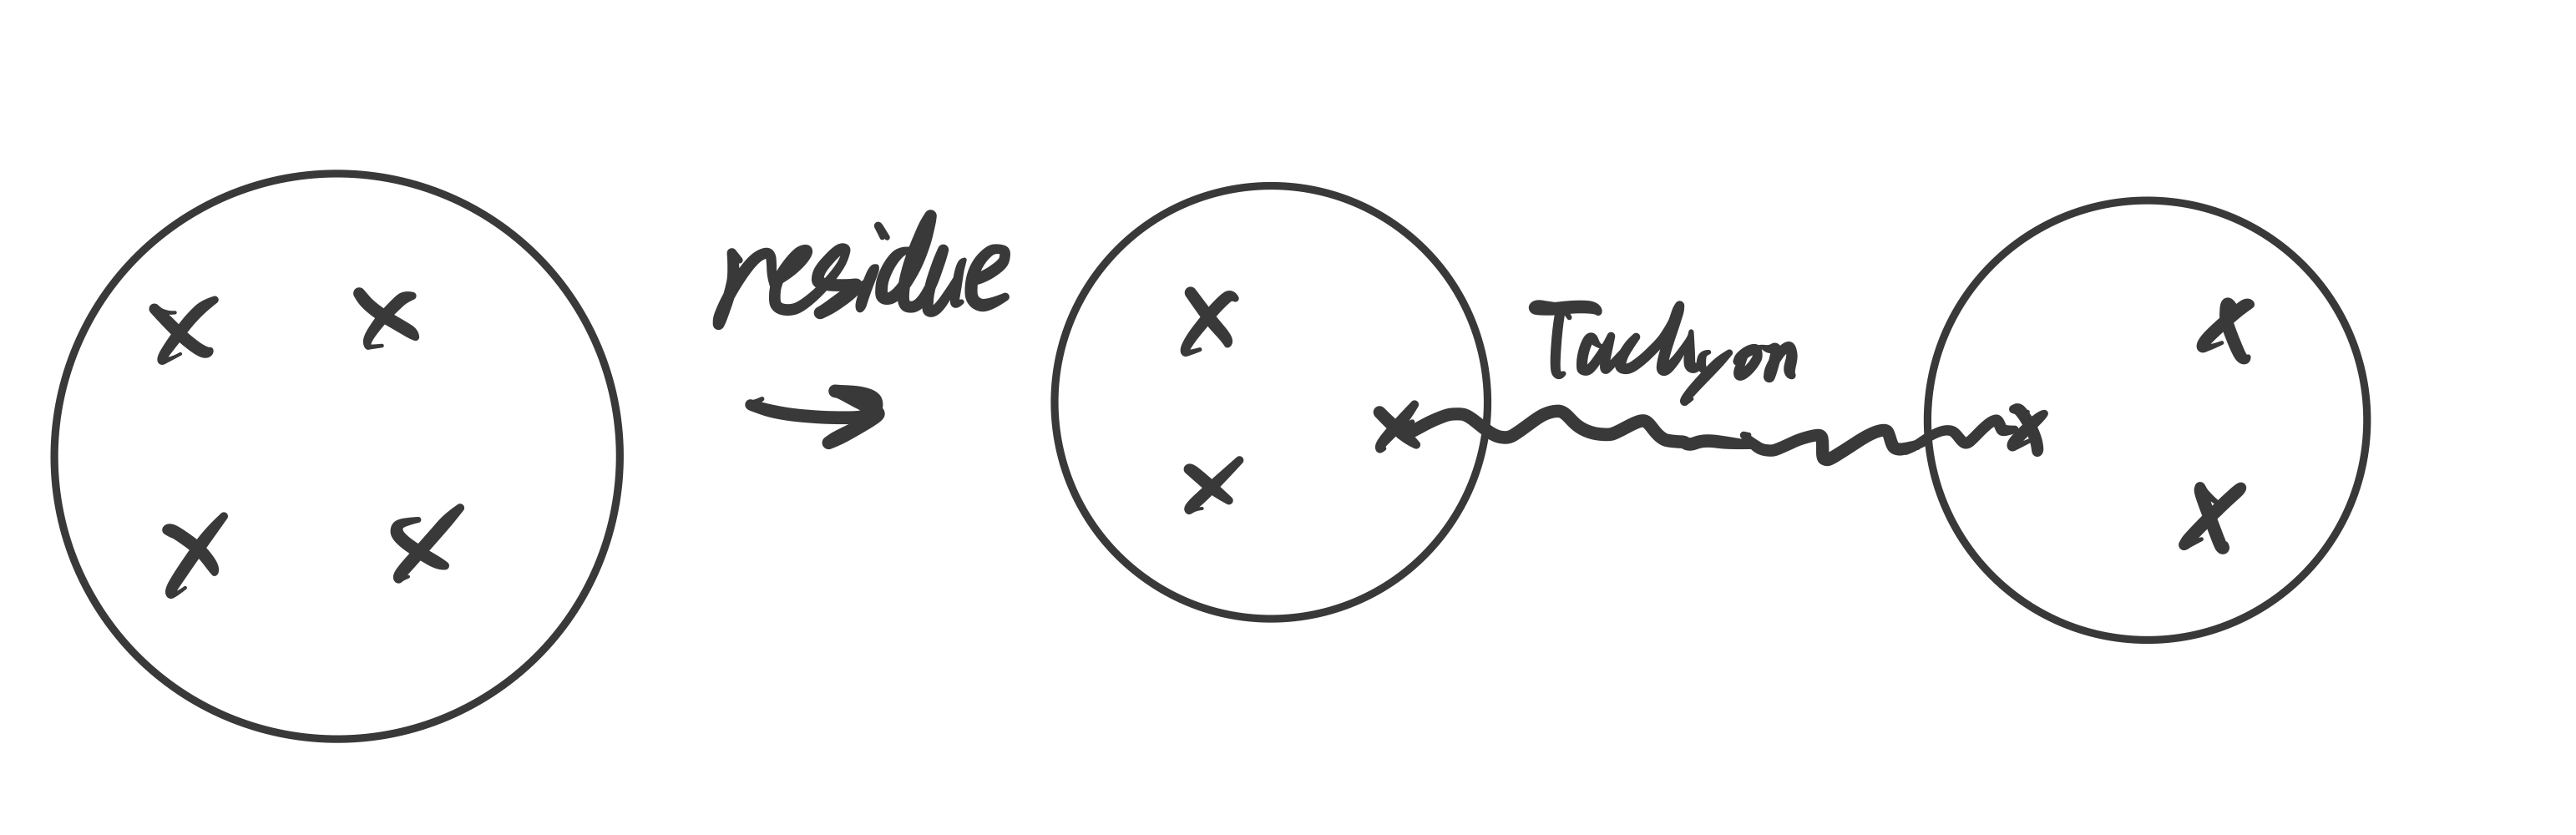 residue
Tachyon